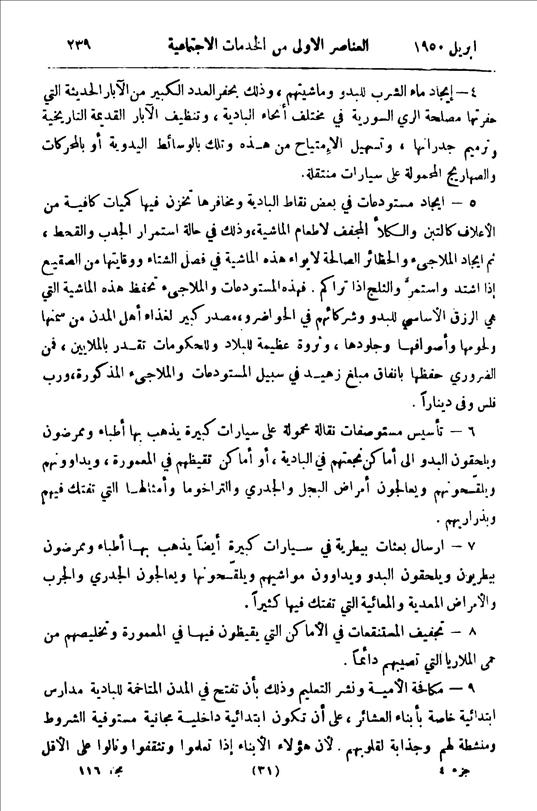 ابريل ١٩٥٠ العناصر الاولى من الخدمات الاجتماعية ٢٣٩
٤ – إيجاد ماء الشرب للبدو وماشيتهم ، وذلك بحفر العدد الكبير من الآبار الحديثة التي
حفرتها مصلحة الري السورية في مختلف أنحاء البادية ، وتنظيف الآبار القديمة التاريخية
وترميم جدرانها ، وتسهيل الإمتياح من هذه وتلك بالوسائط اليدوية أو بالمحركات
والصهاريج المحمولة على سيارات متنقلة.
٥ – ايجاد مستودعات في بعض نقاط البادية ومخافرها تخزن فيها كميات كافية من
الأعلاف كالتبن والكلأ المجفف لاطعام الماشية،وذلك في حالة استمرار الجدب والقحط ،
ثم ايجاد الملاجىء والحظائر الصالحة لايواء هذه الماشية في فصل الشتاء ووقايتها من الصقيع
إذا اشتد واستمرَّ والثلج اذا تراكم . فهذه المستودعات والملاجىء تحفظ هذه الماشية التي
هي الرزق الأساسي للبدو وشركائهم في الحواضر،ومصدر كبير لغذاء أهل المدن من سمنها
ولحومها وأصوافها وجلودها ، وثروة عظيمة للبلاد وللحكومات تقدر بالملايين ، فمن
الضروري حفظها بانفاق مبلغ زهيد في سبيل المستودعات والملاجىء المذكورة،ورب
فلس وفى ديناراً .
٦ – تأسيس مستوصفات نقالة محمولة على سيارات كبيرة يذهب بها أطباء وممرضون
ويلحقون البدو الى أماكن نجعتهم في البادية ، أو أماكن تقيظهم في المعمورة ، ويداوونهم
ويلقّحونهم ويعالجون أمراض البجل والجدري والتراخوما وأمثالها التي تفتك فيهم
وبذراريهم .
٧ – ارسال بعثات بيطرية في سيارات كبيرة أيضاً يذهب بها أطباء وممرضون
بيطريون ويلحقون البدو ويداوون مواشيهم ويلقّحونها ويعالجون الجدري والجرب
والأمراض المعدية والمعائية التي تفتك فيها كثيراً .
٨ – تجفيف المستنقعات في الأماكن التي يقيظون فيها في المعمورة وتخليصهم من
حمى الملاريا التي تصيبهم دائماً .
٩ – مكافحة الأمية ونشر التعليم وذلك بأن تفتح في المدن المتاخمة للبادية مدارس
ابتدائية خاصة بأبناء العشائر ، على أن تكون ابتدائية داخلية مجانية مستوفية الشروط
ومنشطة لهم وجذابة لقلوبهم . لأن هؤلاء الأبناء إذا تعلموا وتثقفوا ونالوا على الأقل
جزء ٤ (٣١) مجلد ١١٦